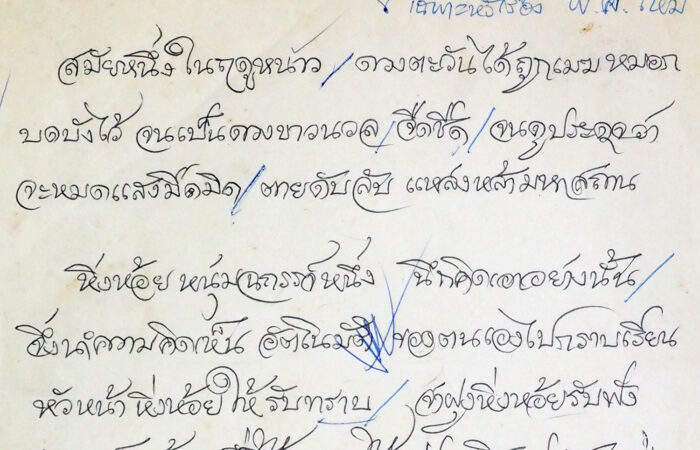 เฉพาะหัวเรื่อง พ.ศ. ใหม่
สมัยหนึ่งในฤดูหนาว / ดวงตะวันได้ถูกเมฆหมอก
บดบังไว้ จนเป็นดวงขาวนวล / จืดชืด / จนดูประดุจว่า
จะหมดแสงมืดมิด / ตายดับลับ แหล่งหล้ามหาสถาน
หิ่งห้อย หนุ่มฉกรรจ์หนึ่ง นึกคิดเอาอย่างนั้น /
จึ่งนำความคิดเห็น อัตโนมัติ ของตนเองไปกราบเรียน
หัวหน้าหิ่งห้อยให้รับทราบ / จ่าฝูงหิ่งห้อยรับฟัง